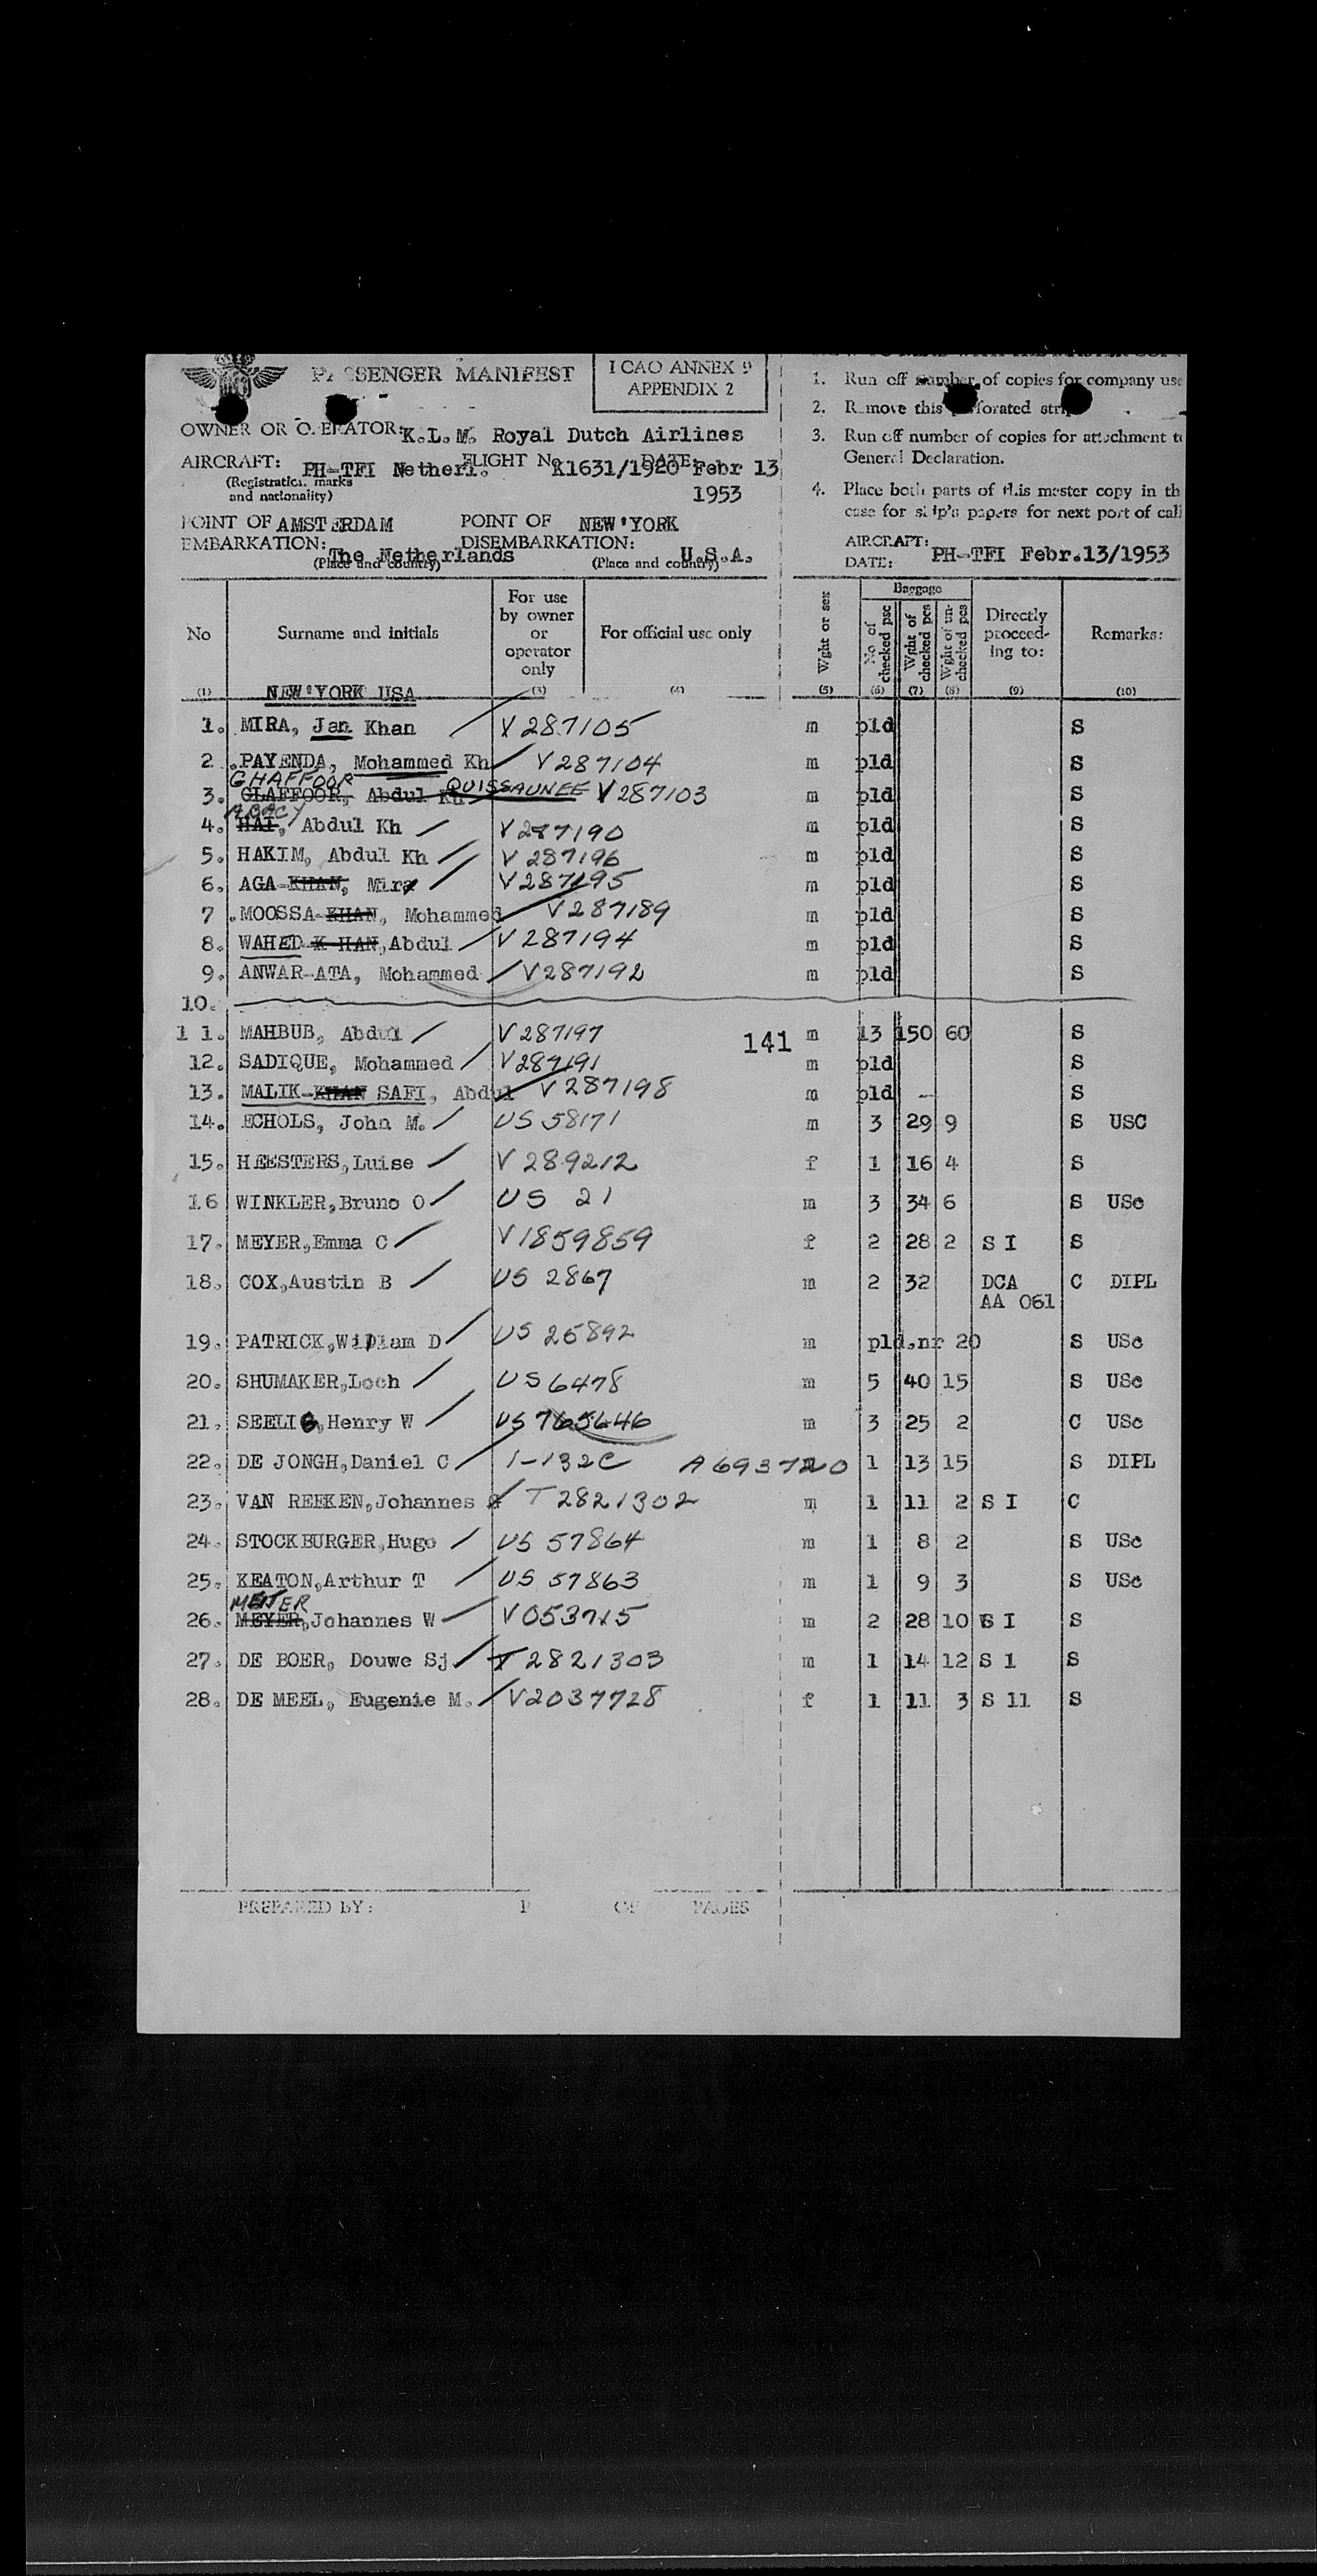 PASSENGER MANIFEST
ICAO ANNEX 9
APPENDIX 2
OWNER OR OPERATOR: K.L.M. Royal Dutch Airlines
AIRCRAFT: PH-TFI Netherl. FLIGHT No K1631/1920 DATE: Febr 13
(Registration marks
and nationality)
1953
POINT OF AMSTERDAM POINT OF NEW'YORK
EMBARKATION: The Netherlands DISEMBARKATION: U.S.A.
(Place and country) (Place and country)
1. Run off number of copies for company use
2. Remove this perforated strip
3. Run off number of copies for attachment to
General Declaration.
4. Place both parts of this master copy in th
case for ship's papers for next port of call
AIRCRAFT: PH-TFI Febr.13/1953
DATE:
No Surname and initials For use by owner or operator only For official use only Wght or sex Baggage No of checked psc Wght of checked pcs Wght of un-checked pcs Directly proceed-ing to: Remarks:
(1) (3) (4) (5) (6) (7) (8) (9) (10)
NEW'YORK USA
1. MIRA, Jan Khan V287105 m pld S
2. PAYENDA, Mohammed Kh V287104 m pld S
GHAFFOOR QUISSAUNEE
3. GLAFFOOR, Abdul Kh V287103 m pld S
4. HAI, Abdul Kh V287190 m pld S
5. HAKIM, Abdul Kh V 287196 m pld S
6. AGA-KHAN, Mira V287195 m pld S
7. MOOSSA-KHAN, Mohammed V287189 m pld S
8. WAHED-K HAN, Abdul V287194 m pld S
9. ANWAR-ATA, Mohammed V287192 m pld S
10.
1 1. MAHBUB, Abdul V287197 141 m 13 150 60 S
12. SADIQUE, Mohammed V287191 m pld S
13. MALIK-KHAN SAFI, Abdul V287198 m pld S
14. ECHOLS, John M. US 58171 m 3 29 9 S USC
15. HEESTERS,Luise V 289212 f 1 16 4 S
16 WINKLER,Bruno O US 21 m 3 34 6 S USc
17. MEYER,Emma C V1859859 f 2 28 2 S I S
18. COX,Austin B US 2867 m 2 32 DCA C DIPL
AA 061
19. PATRICK,William D US 25892 m pld.nr 20 S USc
20. SHUMAKER,Loch US6478 m 5 40 15 S USc
21. SEELIG,Henry W US 765646 m 3 25 2 C USc
22. DE JONGH,Daniel C 1-132C A693720 1 13 15 S DIPL
23. VAN REEKEN,Johannes T2821302 m 1 11 2 S I C
24. STOCKBURGER,Hugo US 57864 m 1 8 2 S USc
25. KEATON,Arthur T US 57863 m 1 9 3 S USc
MEIJER
26. MEYER,Johannes W V053715 m 2 28 10 S I S
27. DE BOER, Douwe Sj. T2821303 m 1 14 12 S 1 S
28. DE MEEL, Eugenie M. V2037728 f 1 11 3 S 11 S
PREPARED BY: OF PAGES